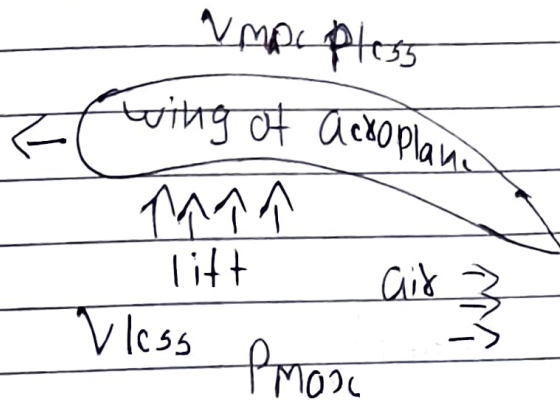 Vmax Pless
wing of aeroplane
lift
air
Vless
Pmax